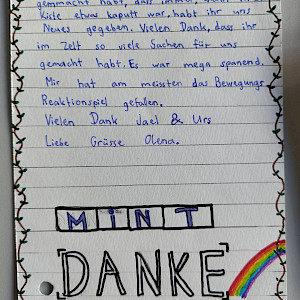 gemmacht habt, dass immer, wenn in der
Kiste etwas kaputt war, habt ihr uns
Neues gegeben. Vielen Dank, dass ihr
im Zelt so viele Sachen für uns
gemacht habt. Es war mega spanend.
Mir hat am meissten das Bewegungs
Reaktionspiel gefallen.
Vielen Dank Jael & Urs
Liebe Grüsse Olena.
MiNT
DANKE